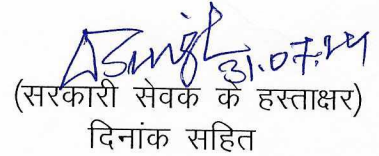 ASingh 31.07.24
(सरकारी सेवक के हस्ताक्षर)
दिनांक सहित